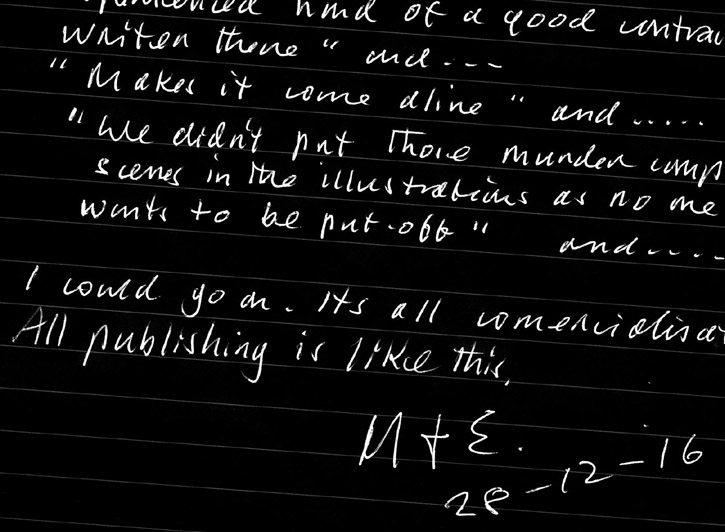 kind of a good contrac
written there" and---
"Makes it come aline" and.....
"We didn't put those munder
scenes in the illustrations as no one
wants to be put-off" and....
I could go on. Its all comercialisa
All publishing is like this.
M + E.
28-12-16